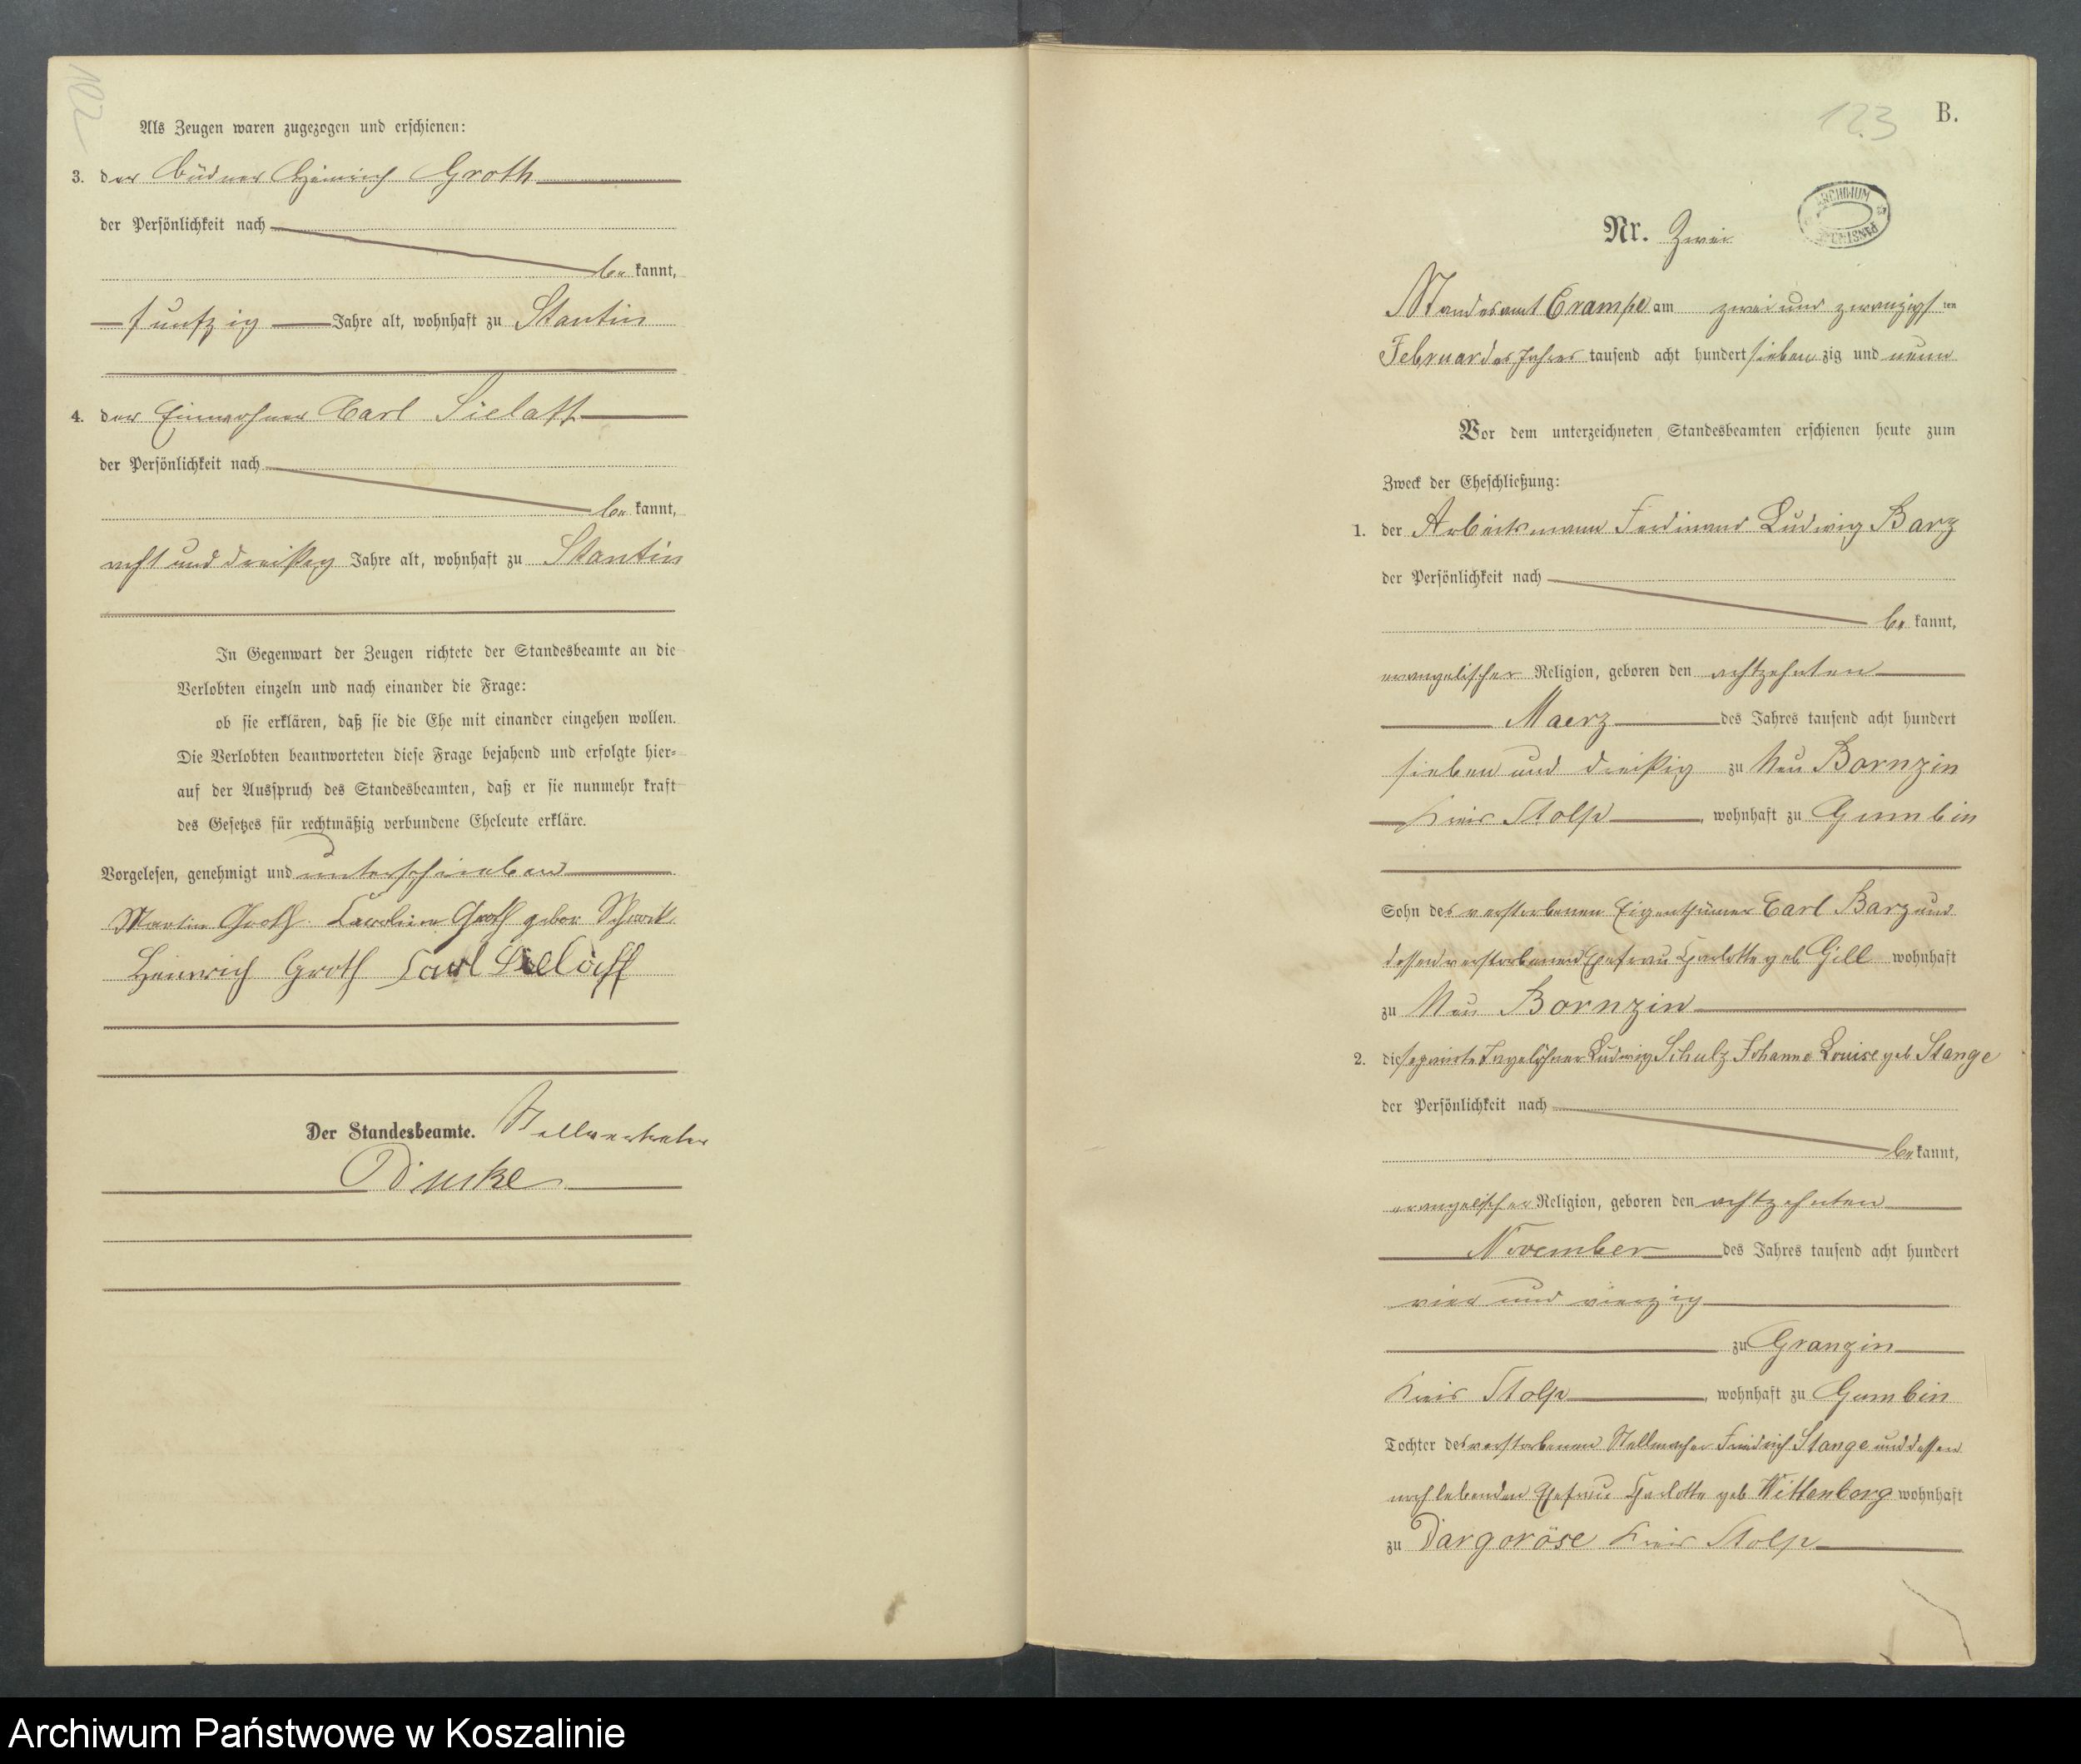 102
Als Zeugen waren zugezogen und erschienen:
3. der Büdner Heinrich Groth
der Persönlichkeit nach
be kannt,
funfzig Jahre alt, wohnhaft zu Stantin
4. der Einwohner Carl Sielaff
der Persönlichkeit nach
be kannt,
acht und dreißig Jahre alt, wohnhaft zu Stantin
In Gegenwart der Zeugen richtete der Standesbeamte an die
Verlobten einzeln und nach einander die Frage:
ob sie erklären, daß sie die Ehe mit einander eingehen wollen.
Die Verlobten beantworteten diese Frage bejahend und erfolgte hier-
auf der Ausspruch des Standesbeamten, daß er sie nunmehr kraft
des Gesetzes für rechtmäßig verbundene Eheleute erkläre.
Vorgelesen, genehmigt und unterschrieben
Martin Groth Caroline Groth gebor
Heinrich Groth Carl Sielaff
Der Standesbeamte. Stellvertreter
123
B.
ARCHIWUM
Nr. Zwei
Standesamt Crampe am zwei und zwanzigsten
Februar des Jahres tausend acht hundert siebenzig und neun
Vor dem unterzeichneten Standesbeamten erschienen heute zum
Zweck der Eheschließung:
1. der Arbeitsmann Ferdinand Ludwig Barz
der Persönlichkeit nach
be kannt,
evangelischer Religion, geboren den achtzehnten
Maerz des Jahres tausend acht hundert
sieben und dreißig zu Neu Bornzin
Kreis Stolp, wohnhaft zu Gumbin
Sohn des verstorbenen Eigenthümer Carl Barz und
dessen verstorbenen Ehefrau Charlotte geb Gill wohnhaft
zu Neu Bornzin
2. die separirte Tagelöhner Ludwig Schulz Johanne Louise geb Stange
der Persönlichkeit nach
be kannt,
evangelischer Religion, geboren den achtzehnten
November des Jahres tausend acht hundert
vier und vierzig
zu Granzin
Kreis Stolp, wohnhaft zu Gumbin
Tochter des verstorbenen Stellmacher Friedrich Stange und dessen
noch lebenden Ehefrau Charlotte geb Wittenberg wohnhaft
zu Dargeröse Kreis Stolp
Archiwum Państwowe w Koszalinie